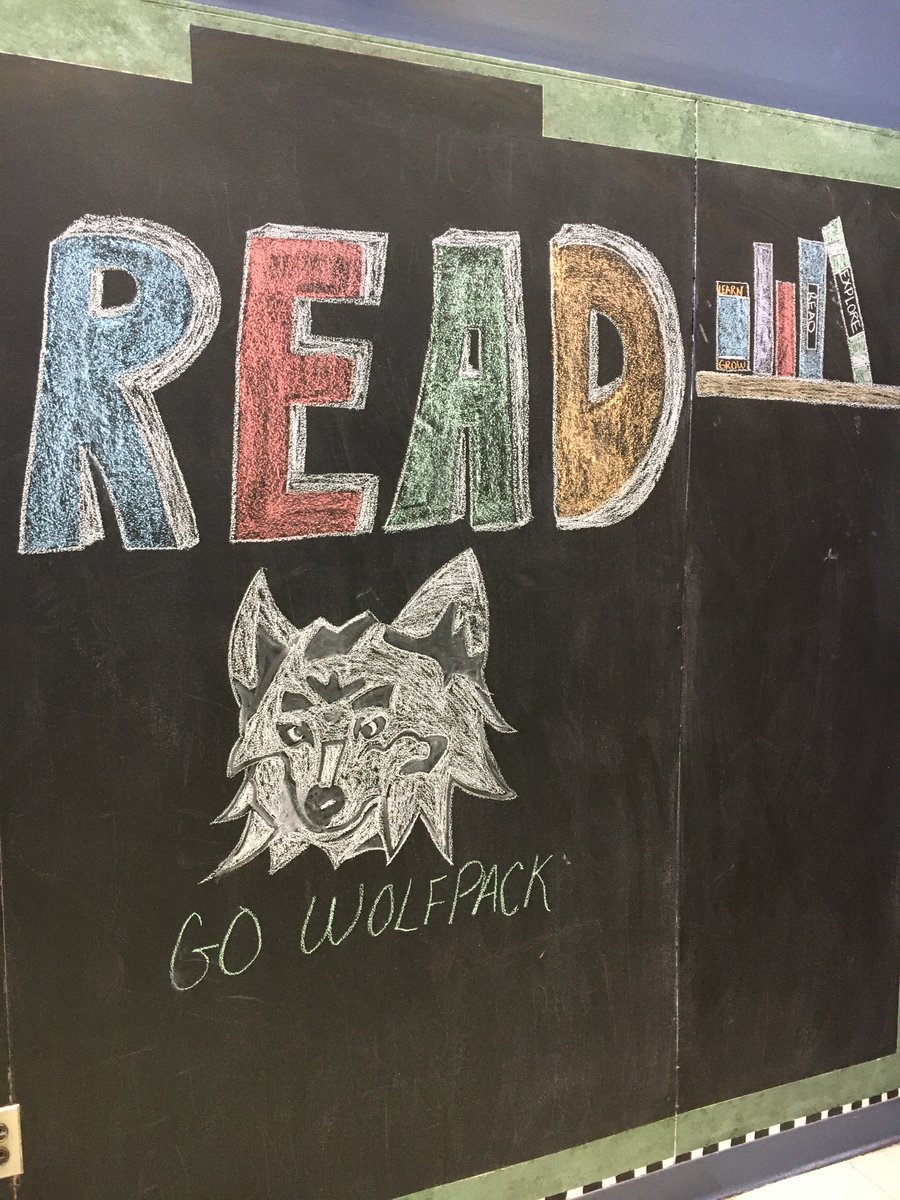 READ
LEARN
GROW
READ
EXPLORE
GO WOLFPACK